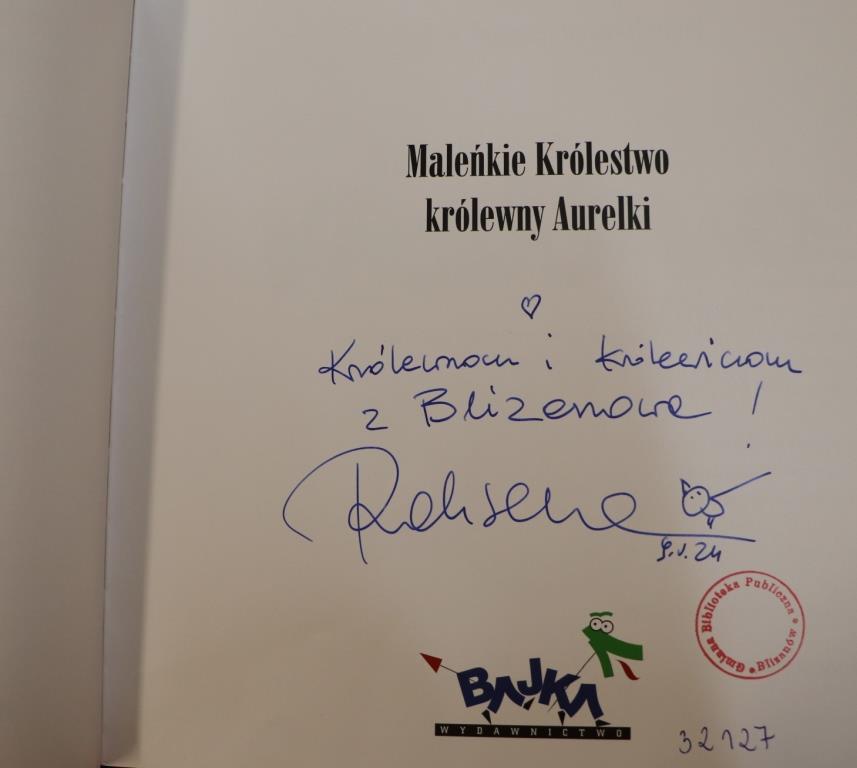 Maleńkie Królestwo
królewny Aurelki
Królewnom i królewiczom
z Blizanowa!
Roksana
9.V.24
Gminna Biblioteka Publiczna * Blizanów *
BAJKA
WYDAWNICTWO
32127